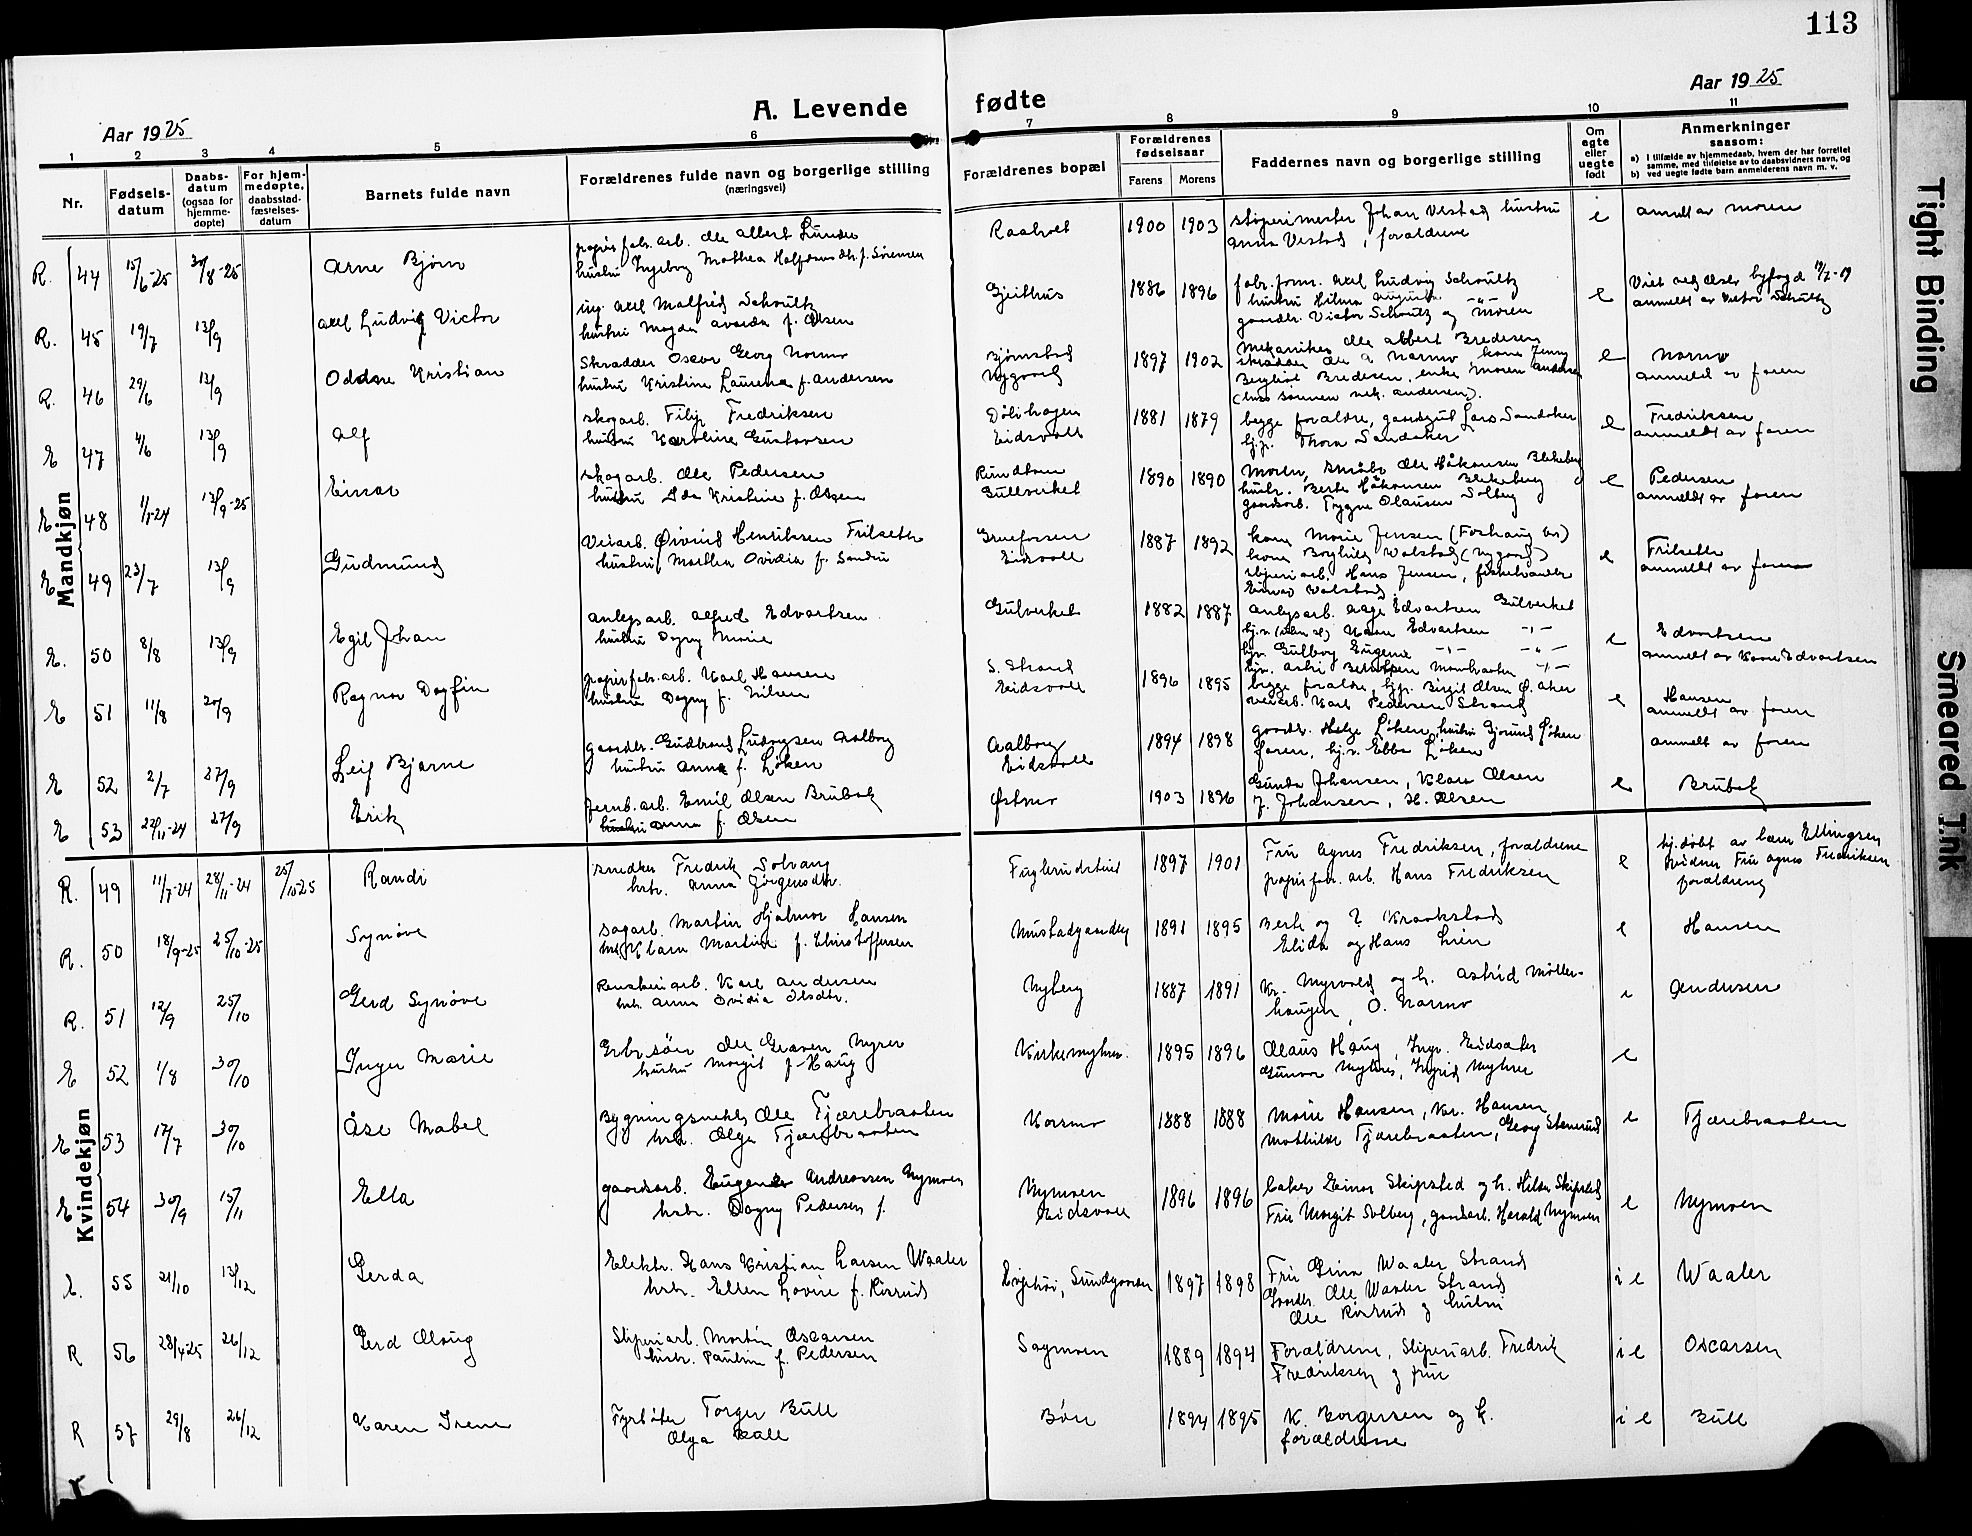 113
A. Levende fødte
Aar 1925
Aar 1925
1 2 3 4 5 6 7 8 9 10 11
Nr.
Fødsels-
datum
Daabs-
datum
(ogsaa for
hjemme-
døpte)
For hjem-
medøpte,
daabsstad-
fæstelses-
datum
Barnets fulde navn
Forældrenes fulde navn og borgerlige stilling
(næringsvei)
Forældrenes bopæl
Forældrenes
fødselsaar
Farens Morens
Faddernes navn og borgerlige stilling
Om
ægte
eller
uegte
født
Anmerkninger
saasom:
a) i tilfælde av hjemmedaab, hvem der har forrettet
samme, med tilføielse av to daabsvidners navn, og
b) ved uegte fødte barn anmelderens navn m. v.
Mandkjøn
R. 44 15/6-25 30/8-25 Arne Bjørn
papirfabr. arb. Ole Albert Lunde
hustru Ingeborg Mathea Halfdansdtr. f. Sørensen
Raaholt 1900 1903
sliperimester Johan Vestad hustru
Anna Vestad, forældrene
e anmeldt av moren
R. 45 19/7 13/9 Axel Ludvig Victor
ing. Axel Malfred Schoultz
hustru Magda f. Olsen
Gjeithus 1886 1896
fabr. form. Axel Ludvig Schoultz
hustru Hilma Augusta
gaardbr. Victor Schoultz og moren
e
anmeldt av Victor Schultz
R. 46 29/6 13/9 Oddne Kristian
Skrædder Oscar Georg Narmo
hustru Kristine Laurena f. Andersen
Bjørnstad
Nygaard
1897 1902
Mekaniker Ole Albert Bredesen
skrædder Ole A Narmo, kone Jenny
Berghild Bredesen, enke Maren Andersen
e Narmo
anmeldt av faren
E 47 4/6 13/9 Alf
skogarb. Filip Fredriksen
hustru Karoline Gustavsen
Dølihagen
Eidsvoll
1881 1879
begge forældre, gaardgut Lars Sandaker
hj.p. Thora Sandaker
e Fredriksen
anmeldt av faren
E 48 1/1-24 13/9-25 Einar
skogarb. Ole Pedersen
hustru Ida Kristine f. Olsen
Rundtom
Gullverket
1890 1890
Moren, småbr. Ole Håkonsen Blekeberg
hustr. Berte Håkonsen Blekeberg
gaardsarb. Trygve Olausen Solberg
e Pedersen
anmeldt av faren
E 49 23/7 13/9 Gudmund
Veiarb. Øivind Henriksen Frilseth
hustru Martha Ovidia f. Sandnu
Eidsvoll
1887 1892
kone Marie Jensen (Forhaug br)
kone Borghild Valstad (Nygaard)
sliperiarb. Hans Jensen, fiskehandler
Einar Valstad
e Frilseth
anmeldt av faren
E. 50 8/8 13/9 Egil Johan
anlegsarb. Alfred Edvartsen
hustru Dagny Marie
Gulverket 1882 1887
anlegsarb. Aage Edvartsen Gulverket
Kaare Edvartsen -"-
hjv. Gulborg Eugenie -"-
e Edvartsen
anmeldt av Kaare Edvartsen
E 51 11/8 20/9 Ragnar Dagfin
papirfabr. arb. Karl Hansen
hustru Dagny f. Nilsen
S. Strand
Eidsvoll
1896 1895
begge forældre, hjp. Birgit Olsen
veiarb. Karl Pedersen Strand
e Hansen
anmeldt av faren
E 52 2/7 27/9 Leif Bjarne
gaardbr. Gudbrand Ludvigsen Aalborg
hustru Anna f. Løken
Aalborg
Eidsvoll
1894 1898
gaardbr. Helge Løken, hustru Gjorund Løken
faren, hj.v. Ebba Løken
anmeldt av faren
E 53 22/11-24 27/9 Erik
Jernb. arb. Emil Olsen Brubak
hustru Anna f. Olsen
Østmo 1903 1896
Gunda Johansen, Klara Olsen
J. Johansen, H. Olsen
e Brubak
Kvindekjøn
R. 49 11/7-24 28/11-24 25/10-25 Randi
snedker Fredrik Solvang
hstr. Anna Jørgensdtr.
Fuglerudsteiet 1897 1901
Fru Agnes Fredriksen, forældrene
papirfabr. arb. Hans Fredriksen
e hj.døbt av læge Ellingsen
vidner Fru Agnes Fredriksen
forældrene
R. 50 18/9-25 25/10-25 Synøve
sagarb. Martin Hjalmar Hansen
Klara Martine f. Christoffersen
Mustadgaardby 1891 1895
Berte og ? Kraakstad
Elida og Hans Lien
e Hansen
R. 51 12/9 25/10 Gerd Synøve
Karl Andersen
hstr. Anna Ovidia Olsdtr.
Nyberg 1887 1891
Kr. Myrvold og h. Astrid Møller-
haugen, O. Narmo
e Andersen
E 52 1/8 30/10 Inger Marie
Ole Graven Myrer
hustru Margit f. Haug
Kirkemyhren. 1895 1896
Olaus Haug, Ingv. Eidsaker
Gunvor Myhrer, Ingrid Myhrer
e
E 53 17/7 30/10 Åse Mabel
Bygningssnekk. Ole Tjærebraaten
hstr. Olga Tjærebraaten
Korsmo 1888 1888
Marie Hansen, Kr. Hansen
Mathilde Tjærebraaten, Georg Stenerud
e Tjærebraaten
E 54 30/9 15/11 Ella
gaardsarb. Eugen Andreassen Nymoen
hstr. Dagny Pedersen f.
Nymoen
Eidsvoll
1896 1896
baker Einar Skipsted og h. Hilda Skipsted
Fru Margit Solberg, gaardsarb. Harald Nymoen
e Nymoen
E. 55 21/10 13/12 Gerda
Elektr. Hans Kristian Larsen Waaler
hstr. Ellen Lovise f. Rørrud
Sundgaarden 1897 1898
Fru Waaler Strand
Gaardbr. Ole Waaler Strand
Ole Rørrud og hustru
i e Waaler
R 56 28/4 25 26/12 Gerd Aloug
Sliperiarb. Martin Oscarsen
hustr. Pauline f. Pedersen
Sagmoen 1889 1894
Forældrene, Sliperiarb. Fredrik
Fredriksen og frue
i e Oscarsen
R 57 29/8 26/12 Karen Irene
Fyrbøter Torger Bull
Olga Bull
Bøn 1894 1895
K. Borgersen og h.
forældrene
i e Bull
Tight Binding
Smeared Ink